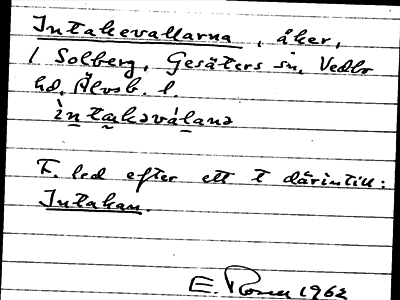 Intakevallarna, åker,
/ Solberg, Gesäters sn, Vedbo
hd, Älvsb. l.
ìntakəválanə
F. led efter ett t därintill:
Intakan.
E. 1962